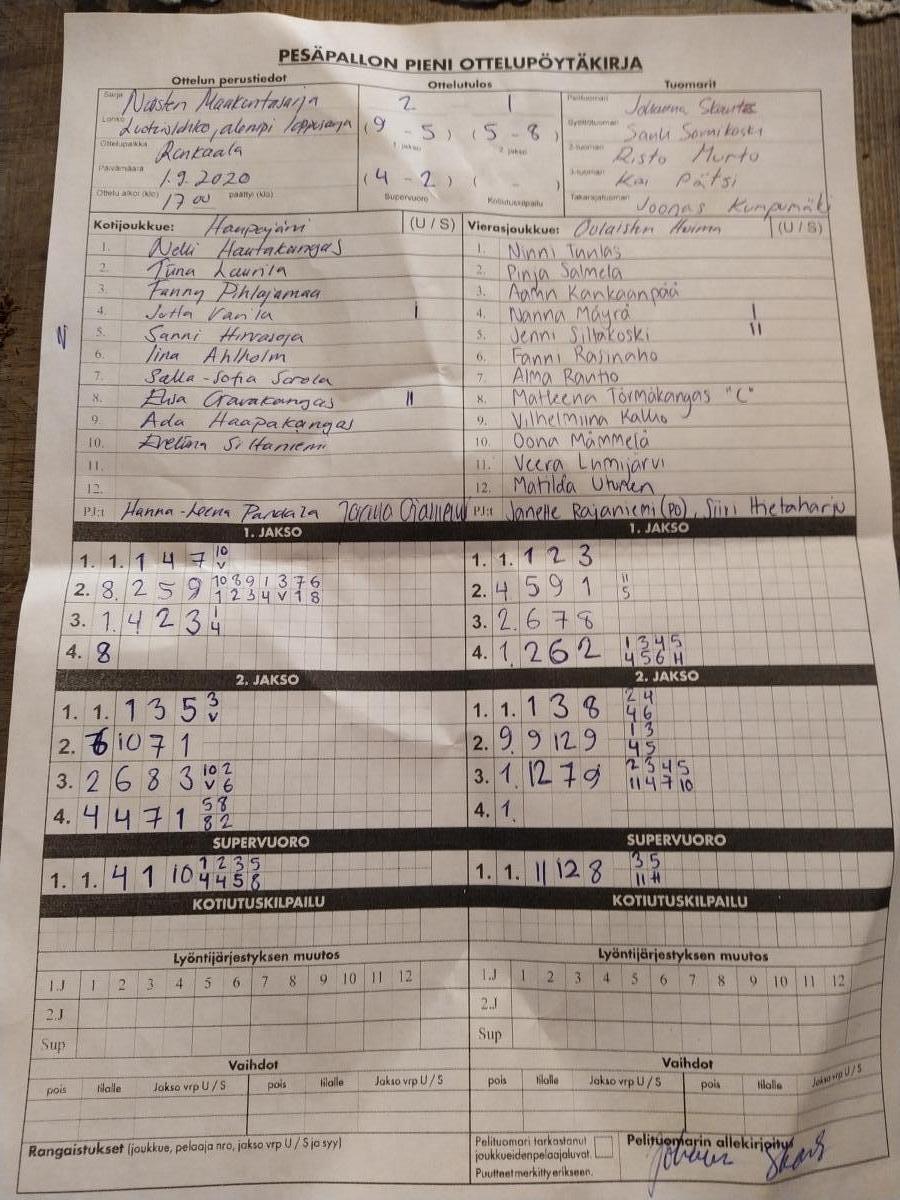 PESÄPALLON PIENI OTTELUPÖYTÄKIRJA
Ottelun perustiedot Ottelutulos Tuomarit
Sarja Naisten Maakuntasarja 2 1 Pelituomari Johanna
Lohko alempi loppusarja (9 - 5) (5 - 8) Syöttötuomari
1. jakso 2. jakso
Ottelupaikka Rankaala 2-tuomari Risto Murto
Päivämäärä 1.9.2020 (4 - 2) ( - ) 3-tuomari Kai Pätsi
Ottelu alkoi (klo) 17 00 päättyi (klo) Supervuoro Kotiutuskilpailu Takarajatuomari Joonas Kumpumäki
Kotijoukkue: Haapajärvi (U / S) Vierasjoukkue: Oulaisten Huima (U / S)
1. Nelli Hautakangas 1. Ninni Tuulas
2. Tiina Laurila 2. Pinja Salmela
3. Fanny Pihlajamaa 3. Kankaanpää
4. Jutta Vanila I 4. Nanna Mäyrä I
N 5. Sanni Hirvasoja 5. Jenni Siltakoski II
6. Iina Ahlholm 6. Fanni Rasinaho
7. Salla-Sofia Sorola 7. Alma Rautio
8. Elisa II 8. Matleena Törmäkangas "C"
9. Ada Haapakangas 9. Vilhelmiina Kallio
10. Eveliina Siltaniemi 10. Oona Mämmelä
11. 11. Veera Lumijärvi
12. 12. Matilda Uturlen
PJ:t Hanna-Leena Pandala PJ:t Janette Rajaniemi (PO), Siiri Hietaharju
1. JAKSO 1. JAKSO
1. 1. 1 4 7 10 1. 1. 1 2 3
v
2. 8. 2 5 9 10 8 9 1 3 7 6 2. 4 5 9 1 11
1 2 3 4 v 1 8 5
3. 1. 4 2 3 1 3. 2. 6 7 8
4
4. 8 4. 1. 2 6 2 1 3 4 5
4 5 6 H
2. JAKSO 2. JAKSO
1. 1. 1 3 5 3 1. 1. 1 3 8 2 4
v 4 6
2. 6 10 7 1 2. 9. 9 12 9 1 3
4 5
3. 2 6 8 3 10 2 3. 1. 12 7 9 2 3 4 5
v 6 11 4 7 10
4. 4 4 7 1 5 8 4. 1.
8 2
SUPERVUORO SUPERVUORO
1. 1. 4 1 10 1 2 3 5 1. 1. 11 12 8 3 5
4 4 5 8 11 H
KOTIUTUSKILPAILU KOTIUTUSKILPAILU
Lyöntijärjestyksen muutos Lyöntijärjestyksen muutos
1.J 1 2 3 4 5 6 7 8 9 10 11 12 1.J 1 2 3 4 5 6 7 8 9 10 11 12
2.J 2.J
Sup Sup
Vaihdot Vaihdot
pois tilalle Jakso vrp U / S pois tilalle Jakso vrp U / S pois tilalle Jakso vrp U / S pois tilalle Jakso vrp U / S
Rangaistukset (joukkue, pelaaja nro, jakso vrp U / S ja syy) Pelituomari tarkastanut Pelituomarin allekirjoitus
joukkueidenpelaajaluvat.
Puutteet merkitty erikseen.